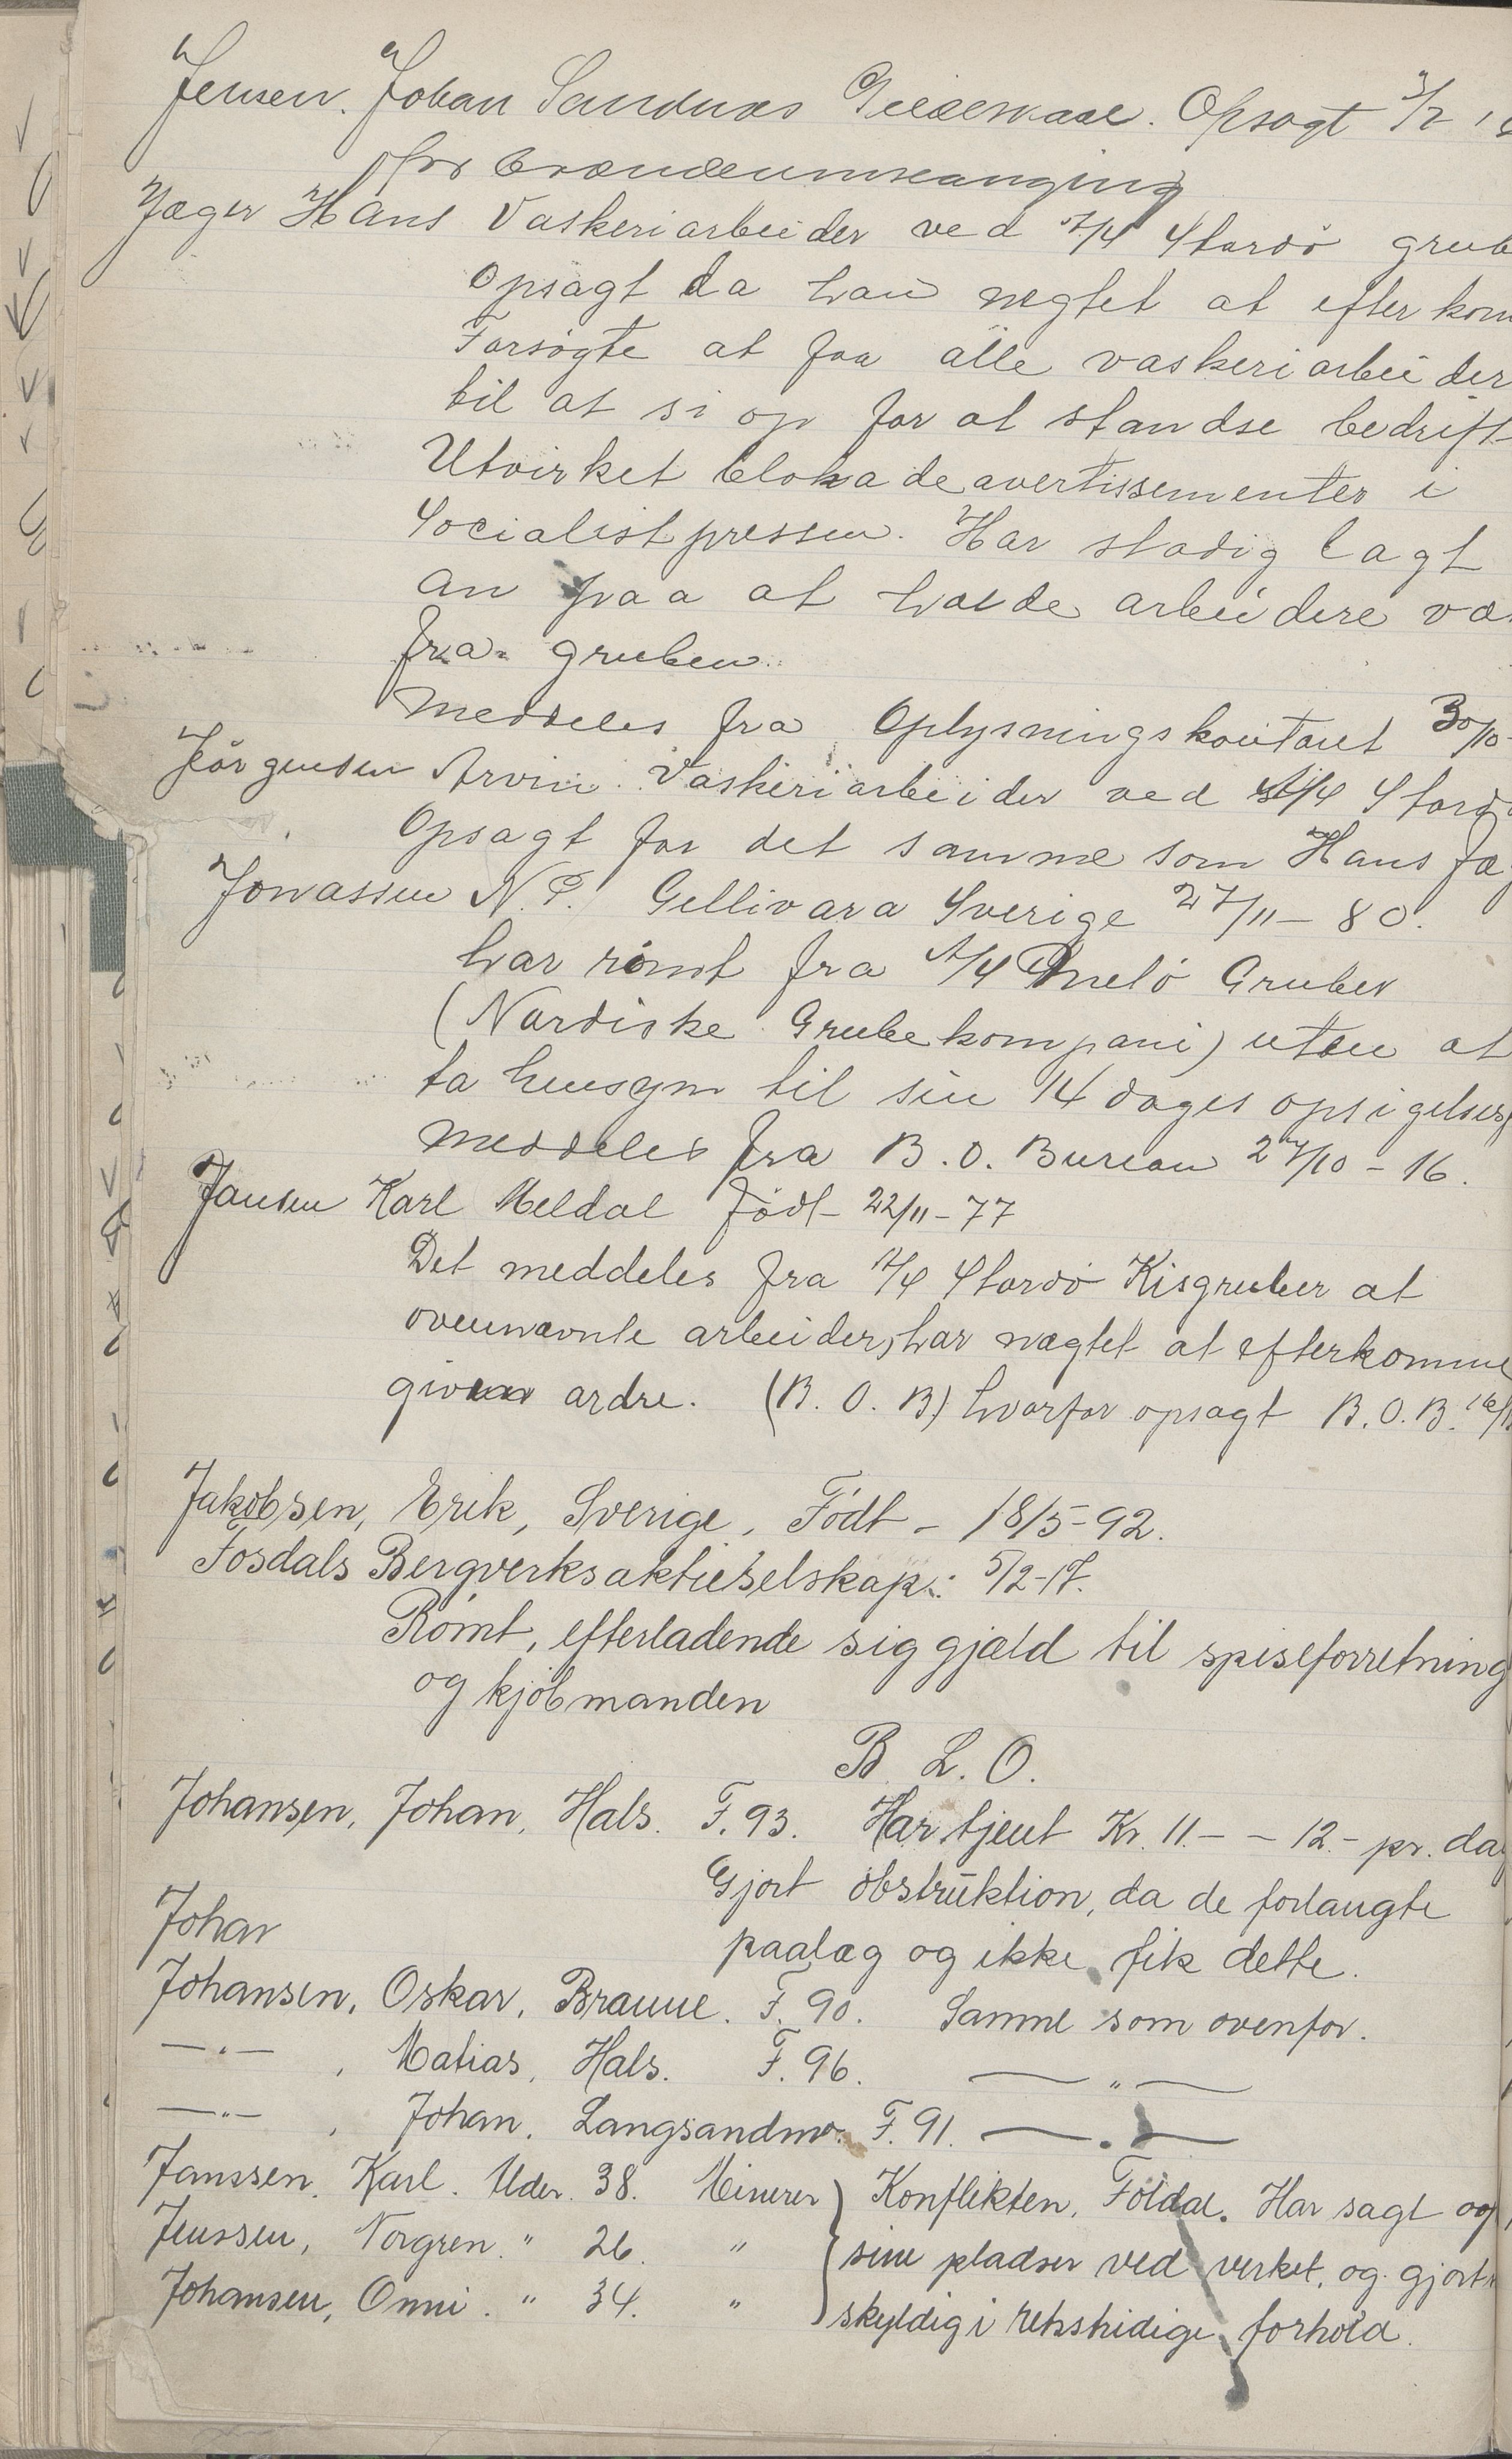 Jensen. Johan Sandnæs Gildeskaal. Opsagt 3/2 1
for brændeunseanging
Jæger Hans Vaskeriarbeider ved A/S Stordö grub
Opsagt da han nægtet at efterkom
Forsögte at faa alle vaskeriarbeider
til at si op for at standse bedrift
Utvirket blokadeavertissementer i
Socialistpressen. Har stadig lagt
an paa at holde arbeidere væ
fra gruben.
Meddeles fra Oplysningskontoret 30/10
Jörgensen Arvin. Vaskeriarbeider ved A/S Stordö
Opsagt for det samme som Hans Jæ
Jonassen N. P. Gellivara Sverige 27/11 - 80.
har römt fra A/S Önelö Gruber
(Nordiske Grubekompani) uten at
ta hensyn til sin 14 dages opsigelses
Meddeles fra B. O. Bureau 27/10 - 16.
Jansen Karl Meldal födt 22/11 - 77
Det meddeles fra A/S Stordö Kisgruber at
ovennævnte arbeider, har nægtet at efterkomme
given ordre. (B. O. B) hvorfor opsagt B. O. B. 16/1
Jakobsen, Erik, Sverige, Födt - 18/5 - 92.
Fosdals Bergverksaktieselskap: 5/2 - 17.
Römt, efterladende sig gjæld til spiseforretning
og kjöbmanden
B. L. O.
Johansen, Johan, Hals. F. 93. Har tjent Kr. 11.- - 12.- pr. dag
Gjort obstruktion, da de forlangte
Johan
paalæg og ikke fik dette.
Johansen, Oskar, Braune. F. 90. Samme som ovenfor.
—"— , Matias, Hals. F. 96. —"—
—"— , Johan, Langsandmo. F. 91. —"—
Janssen, Karl. Alder. 38. Minerer } Konflikten, Foldal. Har sagt op
Jenssen, Norgren. " 26. " } sine pladser ved verket, og gjort
Johansen, Onni. " 34. " } skyldig i retsstridige forhold.